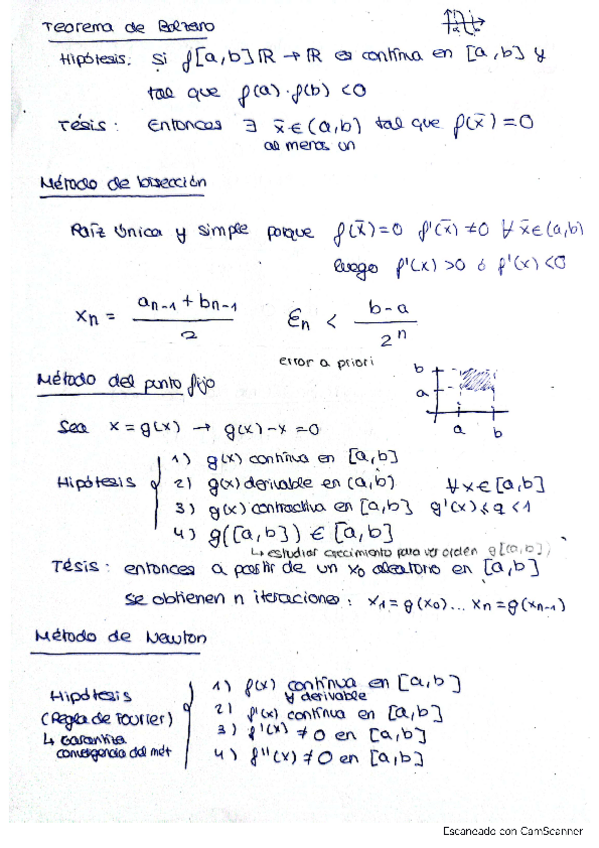 Teorema de Bolzano
Hipótesis: Si f[a,b] ℝ → ℝ es contínua en [a,b] y
tal que f(a)·f(b) < 0
Tésis: Entonces ∃ x̄ ∈ (a,b) tal que f(x̄) = 0
al menos un
Método de bisección
Raíz única y simple porque f(x̄)=0 f'(x̄) ≠0 ∀ x̄∈(a,b)
luego f'(x) >0 ó f'(x) <0
xn = (an-1 + bn-1)/2 En < (b-a)/2^n
error a priori
Método del punto fijo
b
a
a b
Sea x = g(x) → g(x)-x = 0
Hipótesis
1) g(x) contínua en [a,b]
2) g(x) derivable en (a,b) ∀x∈[a,b]
3) g(x) contractiva en [a,b] g'(x) ≤ q < 1
4) g([a,b]) ∈ [a,b]
↳ estudiar crecimiento para ver orden g[(a,b)]
Tésis: entonces a partir de un x0 aleatorio en [a,b]
se obtienen n iteraciones: x1 = g(x0)... xn = g(xn-1)
Método de Newton
Hipótesis
(Regla de Fourier)
↳ Garantiza
convergencia del mét
1) f(x) contínua en [a,b]
y derivable
2) f'(x) contínua en [a,b]
3) f'(x) ≠ 0 en [a,b]
4) f''(x) ≠ 0 en [a,b]
Escaneado con CamScanner